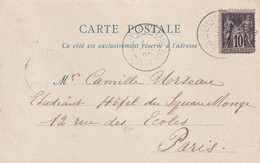 CARTE POSTALE
Ce côté est exclusivement réservé à l'adresse
10
Mr Camille Urseau
Etudiant Hôtel du Square Monge
12 rue des Ecoles
Paris.